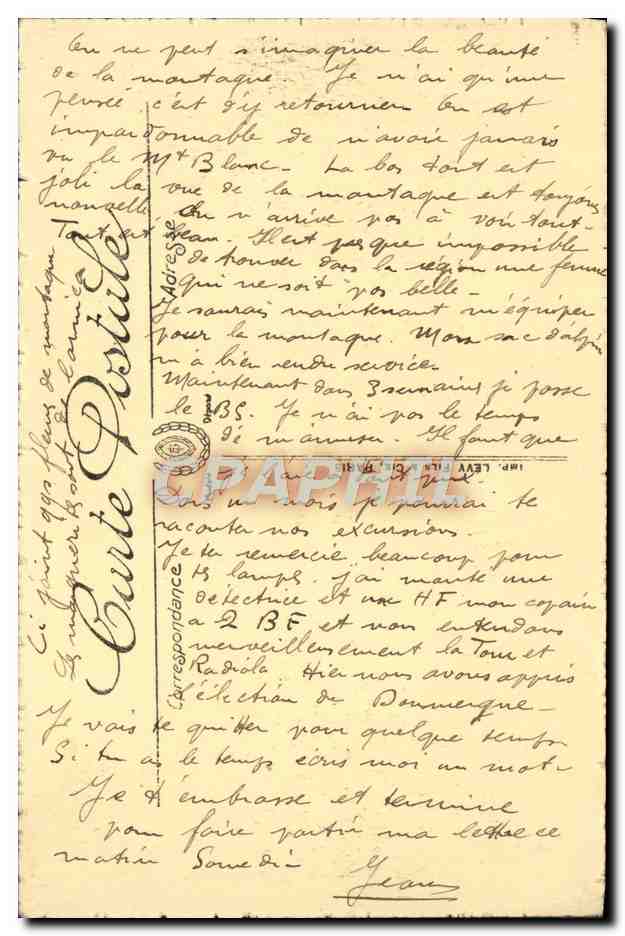 On ne peut s'imaginer la beauté
de la montagne. Je n'ai qu'une
pensée c'est d'y retourner On est
impardonnable de n'avoir jamais
vu le Mt Blanc - La bas tout est
joli la vue de la montagne est toujours
nouvelle On n'arrive pas à voir tout -
Tout est beau. Il est presque impossible
de trouver dans la région une femme
qui ne soit pas belle -
Je saurais maintenant m'équiper
pour la montagne. Mon sac d'alpin
m'a bien rendu service.
Maintenant dans 3 semaines je passe
le BS. Je n'ai pas le temps
de m'amuser. Il faut que
Dans un mois je pourrai te
raconter nos excursions.
Je te remercie beaucoup pour
ts lampes. J'ai monté une
détectrice et une HF mon copain
a 2 BF et nous entendons
merveilleusement la Tour et
Radiola. Hier nous avons appris
l'élection de Doumergue -
Je vais te quitter pour quelque temps
Si tu as le temps écris moi un mot -
Je t'embrasse et termine
pour faire partir ma lettre ce
matin Samedi -
Jean
Ci joint qqs fleurs de montagne
Les marguerites sont de l'arnica !
Carte Postale
Adresse
Correspondance
Déposé
IMP. LÉVY FILS & Cie, PARIS
CPAPHIL